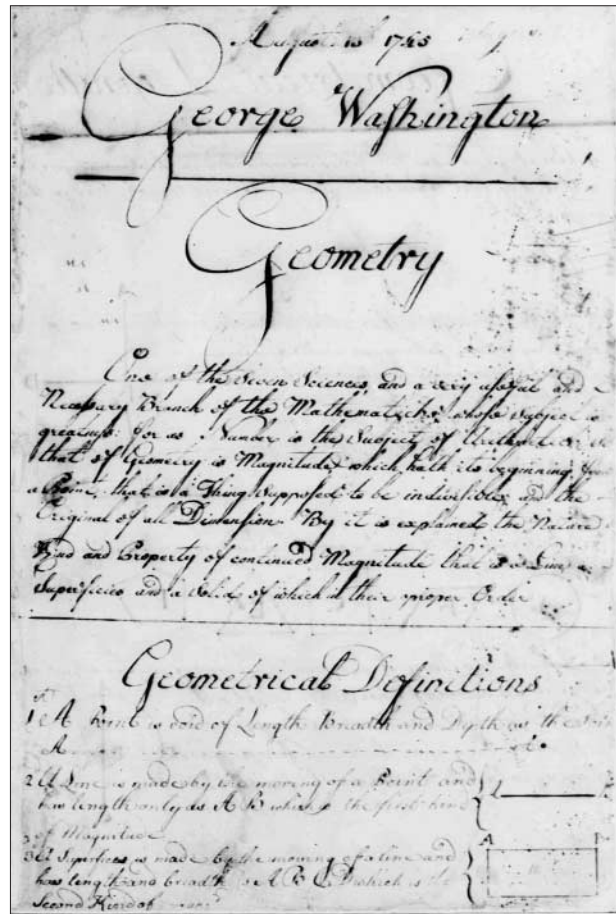 August 13th 1745
George Washington
Geometry
One of the Seven Sciences, and a very useful and
Necessary Branch of the Mathematicks, whose Subject is
greatness: for as Number is the Subject of Arithmetick so
that of Geometry is Magnitude, which hath its beginning from
a Point, that is a Thing Supposed to be indivisible, and the
Original of all Dimension By it is explained the Nature
Kind and Property of continued Magnitude that is a Line a
Superficies and a Solid of which in their proper Order
Geometrical Definitions
1 A Point is void of Length Breadth and Depth as the
A
2 A Line is made by the moving of a Point and
has length only as A B which is the first kind
of Magnitude
3 A Superficies is made by the moving of a line and
has length and breadth as A B C D which is the
Second Kind of
A